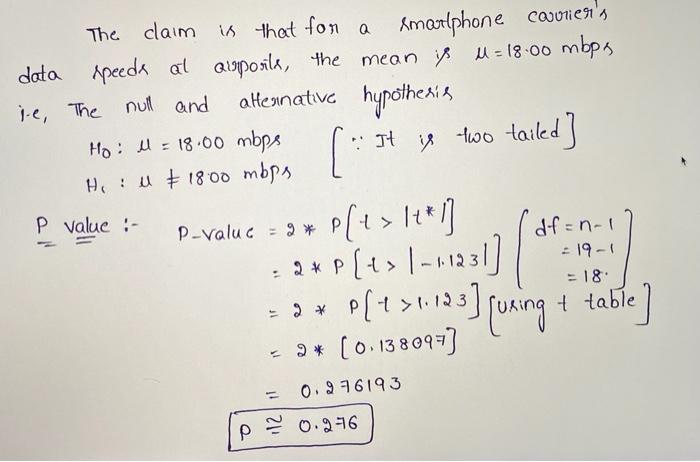 The claim is that for a smartphone carrier's
data speeds at airports, the mean is μ = 18.00 mbps
i.e, The null and alternative hypothesis
H₀ : μ = 18.00 mbps [∵ It is two tailed]
H₁ : μ ≠ 18.00 mbps
P value :- P-value = 2 * P[t > |t*|] [df = n-1
= 2 * P[t > |-1.123|] = 19-1
= 18.]
= 2 * P[t > 1.123] [using t table]
= 2 * [0.138097]
= 0.276193
P ≅ 0.276